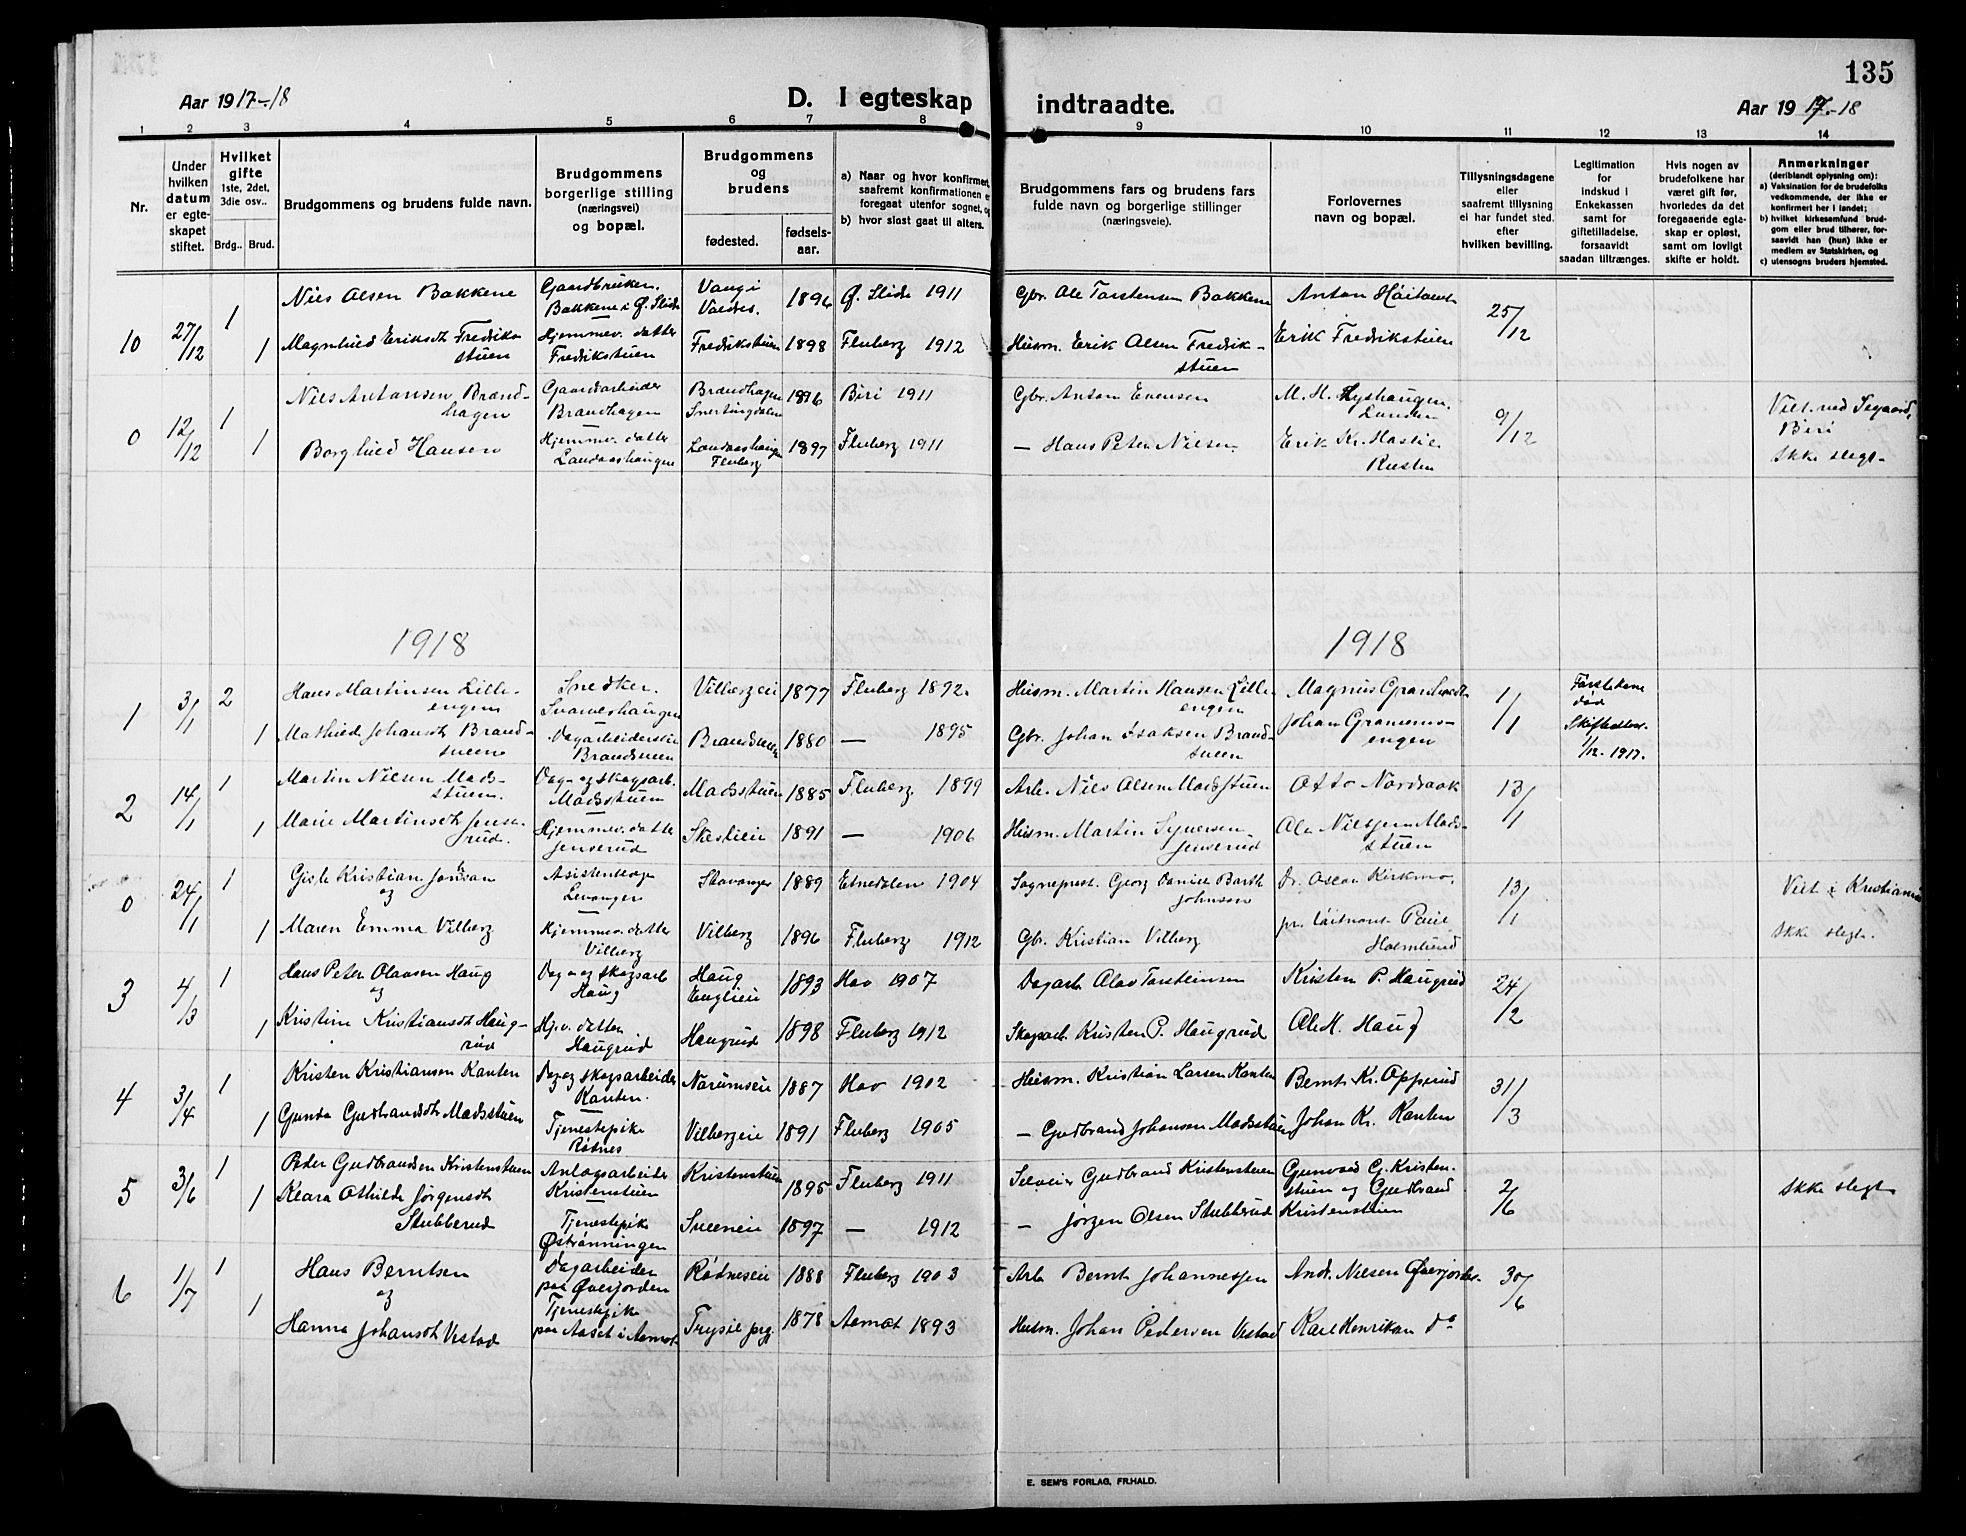 135
Aar 1917-18
D. I egteskap
indtraadte.
Aar 1917-18
1 2 3 4 5 6 7 8 9 10 11 12 13 14
Nr.
Under
hvilken
datum
er egte-
skapet
stiftet.
Hvilket
gifte
1ste, 2det,
3die osv..
Brdg..
Brud.
Brudgommens og brudens fulde navn.
Brudgommens
borgerlige stilling
(næringsvei)
og bopæl.
Brudgommens
og
brudens
fødested.
fødsels-
aar.
a) Naar og hvor konfirmert,
saafremt konfirmationen er
foregaat utenfor sognet, og
b) hvor sidst gaat til alters.
Brudgommens fars og brudens fars
fulde navn og borgerlige stillinger
(næringsveie).
Forlovernes
navn og bopæl.
Tillysningsdagene
eller
saafremt tillysning
ei har fundet sted.
efter
hvilken bevilling.
Legitimation
for
indskud i
Enkekassen
samt for
giftetilladelse,
forsaavidt
saadan tiltrænges.
Hvis nogen av
brudefolkene har
været gift før,
hvorledes da det
foregaaende egta-
skap er opløst,
samt om lovligt
skifte er holdt.
Anmerkninger
(deriblandt oplysning om):
a) Vaksination for de brudefolks
vedkommende, der ikke er
konfirmert her i landet;
b) hvilket kirkesamfund brud-
gom eller brud tilhører, for-
saavidt han (hun) ikke er
medlem av Statskirken, og
c) utensogns bruders hjemsted.
10 27/12 1 Nils Olsen Bakkene
Gaardbruker. Bakkene i Ø. Slidre
Vang i Valdres. 1896 Ø. Slidre 1911
Gbr. Ole Torstensen Bakkene
Anton
25/12
1 Magnhild Eriksdt Fredrik-
stuen
Hjemmev. datter Fredrikstuen
Fredrikstuen 1898 Fluberg 1912
Husm. Erik Olsen Fredrik-
stuen
Erik Fredrikstuen
0 12/12 1 Nils Antonsen Brænd-
hagen
Gaardarbeider Brændhagen
Brændhagen Snertingdalen 1896 Biri 1911
Gbr. Anton Evensen
M. H. Lunden
9/12
Viet ved Segaard,
Biri
Ikke slegt.
1 Borghild Hansen
Hjemmev. datter Landaashaugen
Landaashaugen Fluberg 1897 Fluberg 1911
— Hans Peter Nilsen.
Erik Kr.
1918
1918
1 3/1 2 Hans Martinsen Lille-
engen
Snedker.
Vilbergeie 1877 Fluberg 1892.
Husm. Martin Hansen Lille-
engen
Magnus
1/1
Forstekone
død
Skifteattest.
11/12-1917.
1 Mathilde Johansdt Brand-
sveen
Dagarbeiderske Brandsveen
Brandsveen 1880 — 1895
Gbr. Johan Isaksen Brand-
sveen
Johan
engen
2 14/1 1 Martin Nilsen Mads-
stuen.
Dag- og skogsarb. Madsstuen
Madsstuen 1885 Fluberg 1899
Arb. Nils Olsen Madsstuen
Otto Nordraak
13/1
1 Marie Martinsdt Jense-
rud.
Hjemmev. datter Jenserud
1891 — 1906
Husm. Martin Syversen
Jenserud
Ole Nilssen Mads-
stuen
0 24/1 1 Gisle Kristian Johnson
og
Asistentlæge Levanger
Stavanger 1889 Etnedalen 1904
Sogneprest. Georg Daniel Barth
Johnson
Dr. Oscar Kirkmo,
13/1
Viet i Kristiania
Ikke slegt.
1 Maren Emma Vilberg
Hjemmev. datter Vilberg
Vilberg 1896 Fluberg 1912
Gbr. Kristian Vilberg
pr. løitnant Paul
Holmlund
3 4/3 1 Hans Peter Olavsen Haug
og
Dag- og skogsarb Haug
Haug Englieie 1893 Hov 1907
Dagarb. Olav Torsteinsen
Kristen P. Haugrud
24/2
1 Kristine Kristiansdt Haug-
rud
Hj.v. datter Haugrud
Haugrud 1898 Fluberg 1912
Skogsarb. Kristen P. Haugrud
Ole H. Haug
4 3/4 1 Kristen Kristiansen Kanten
Dag og skogsarbeider Kanten.
Narumseie 1887 Hov 1902
Husm. Kristian Larsen Kanten
Bernt Kr. Opperud
31/3
1 Gunda Gudbrandsdt Madsstuen
Tjenestepike Rødnes
Vilbergeie 1891 Fluberg 1905
— Gudbrand Johansen Madsstuen
Johan Kr. Kanten
5 3/6 1 Peder Gudbrandsen Kristenstuen
Anlægsarbeider Kristenstuen
Kristenstuen 1895 Fluberg 1911
Selveier Gudbrand Kristenstuen
Gunvald G. Kristen-
stuen og Gudbrand
Kristenstuen
2/6
Ikke slegt
1 Klara Othilde Jørgensdt
Stubberud
Tjenestepike Østrønningen
Sveeneie 1897 — 1912
— Jørgen Olsen Stubberud
6 1/7 1 Hans Berntsen
og
Dagarbeider paa Øverjorden
Rødneseie 1888 Fluberg 1903
Arb Bernt Johannessen
Andr. Nilsen Øverjordet.
30/6
1 Hanna Johansdt Vestad
Tjenestepike paa Aaset i Aamot
Trysil prg. 1878 Aamot 1893
Husm. Johan Pedersen Vestad
Karl Henriksen do
E. SEM'S FORLAG, FR.HALD.